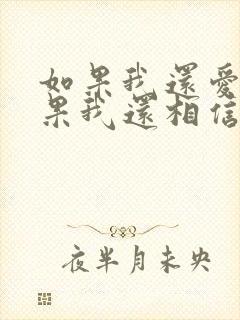 如果我還愛
果我還相信
夜半月未央